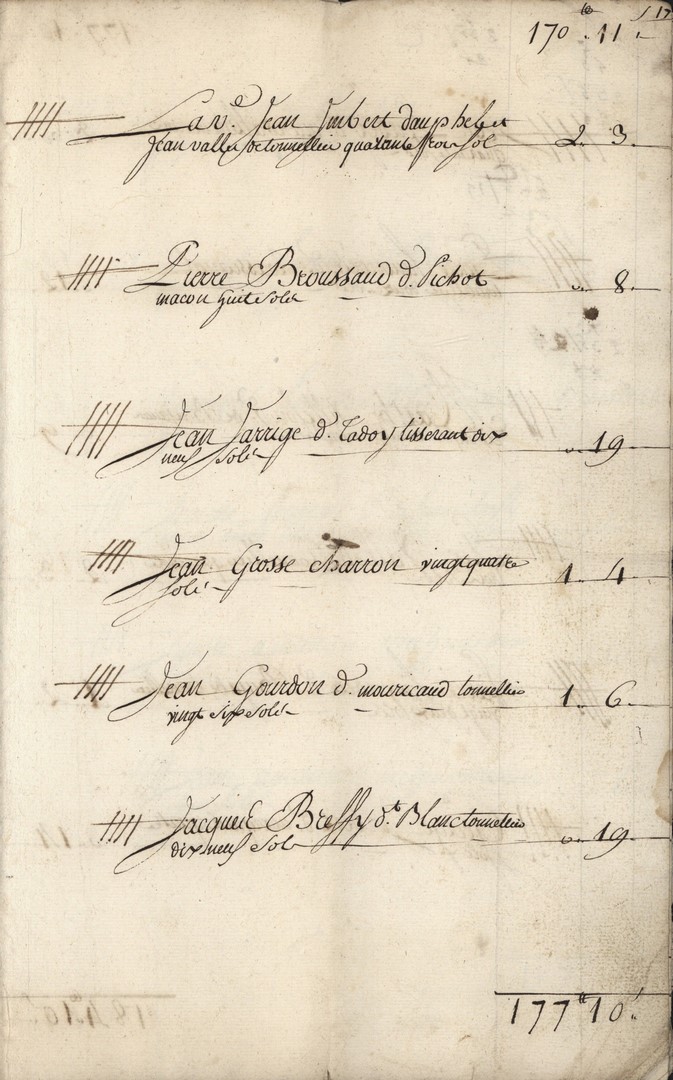 17
170 ₶ 11 s
La v.e Jean Imbert dauphelet
Jean valler tonnellier quarante trois sol 2 3
Pierre Broussaud d. Pichot
macon huit solz 0 8
Jean Jarrige d. Tadoy tisserant dix
neuf solz 0 19
Jean Grosse charron vingt quatre
solz 1 4
Jean Gourdon d. mouricaud tonnellier
vingt six solz 1 6
Jacques Breffy d.t Blanc tonnellier
dix neuf solz 0 19
177 ₶ 10 s